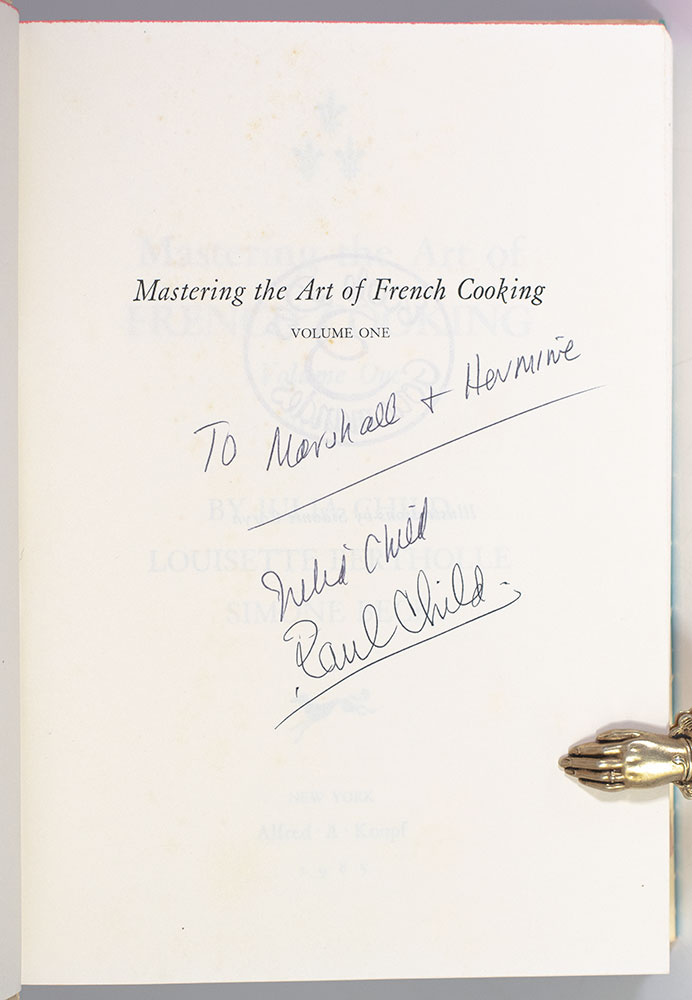 Mastering the Art of French Cooking
VOLUME ONE
To Marshall + Hermine
Julia Child
Paul Child
Mastering the Art of
FRENCH COOKING
Volume One
BY JULIA CHILD
LOUISETTE BERTHOLLE
SIMONE BECK
NEW YORK
Alfred · A · Knopf
1985